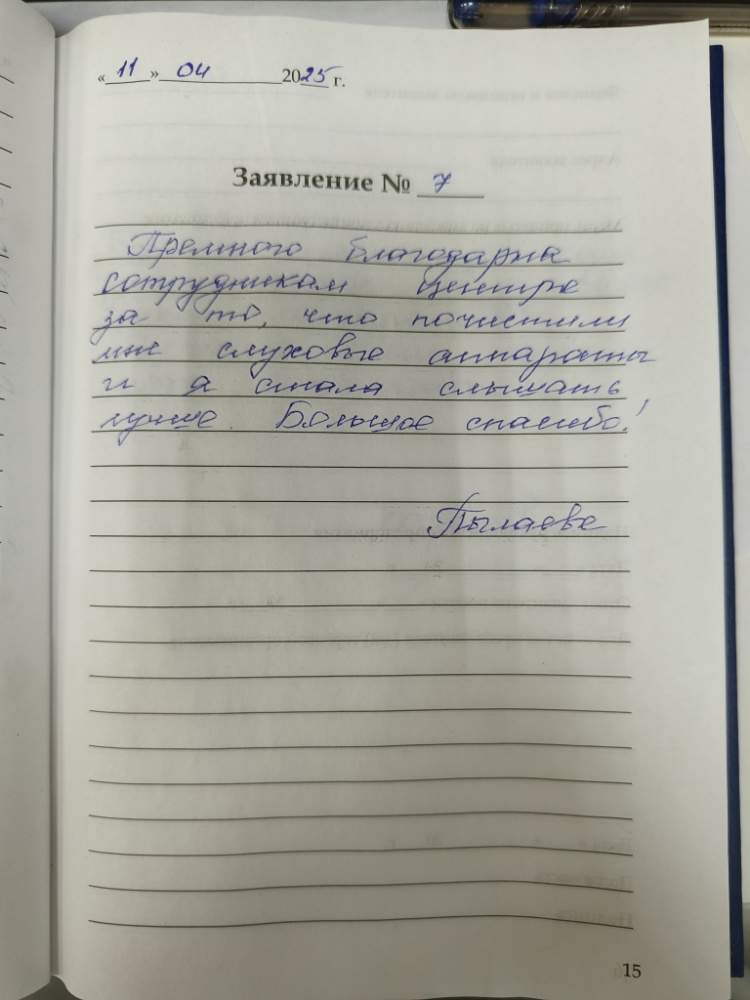 «11» 04 2025 г.
Заявление № 7
Премного благодарна
сотрудникам центра
за то, что почистили
мне слуховые аппараты
и я стала слышать
лучше. Большое спасибо!
Пылаева
15